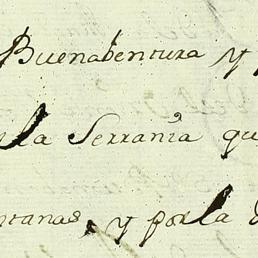 Buenabentura y
la Serranía qu
ntanas, y por la